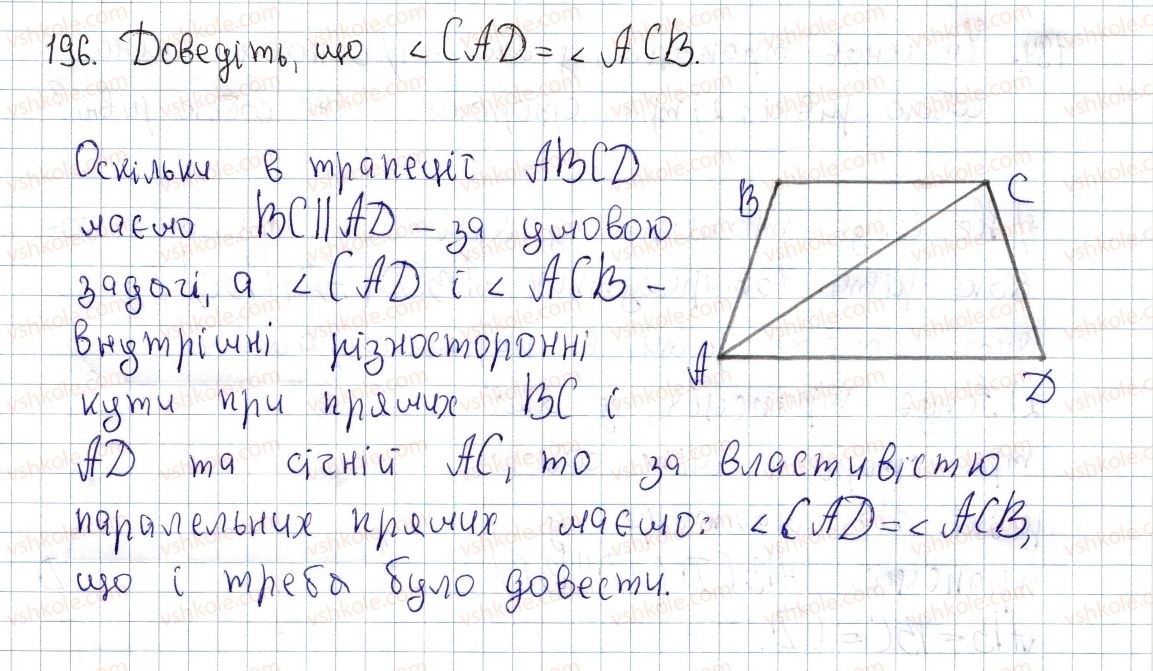 196. Доведіть, що <CAD = < ACB.
Оскільки в трапеції ABCD
маємо BC||AD – за умовою
задачі, а <CAD і < ACB –
внутрішні різносторонні
кути при прямих BC і
AD та січній AC, то за властивістю
паралельних прямих маємо: <CAD = < ACB,
що і треба було довести.
B
C
A
D